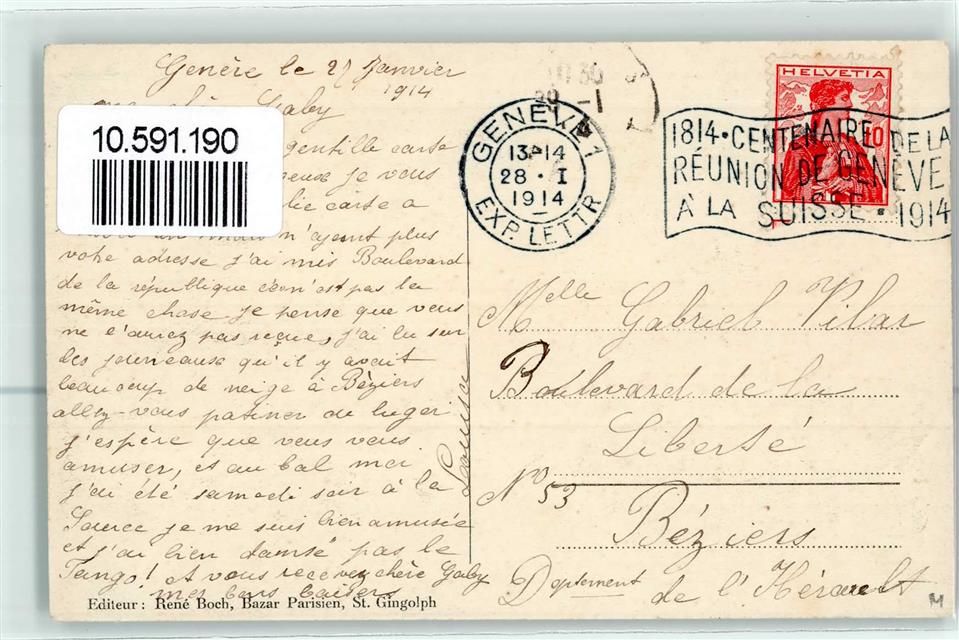 Genève le 27 Janvier
1914
ma chère Gaby
10.591.190
gentille carte
je vous
carte a
n'ayent plus
vohe adresse j'ai mis Boulevard
de la république n'est pas la
même chase je pense que vous
ne l'aurez pas reçue, j'ai lu sur
les journeause qu'il y avait
beaucoup de neige à Béziers
allez-vous patiner ou luger
j'espère que vous vous
amuser, et au bal moi
j'ai été samedi soir à la
Source je me suis bien amusée
et j'ai bien damsé pas le
Tango! A vous recevez chère Gaby
mes bons baisers
Louise
Editeur: René Boch, Bazar Parisien, St. Gingolph
GENÈVE 1
13-14
28 · I
1914
EXP. LETTR
HELVETIA
10
1814 · CENTENAIRE DE LA
RÉUNION DE GENÈVE
À LA SUISSE · 1914
Melle Gabriel Vilar
Boulevard de la
Liberté
No 53
Béziers
Deptement de l'Hérault
M